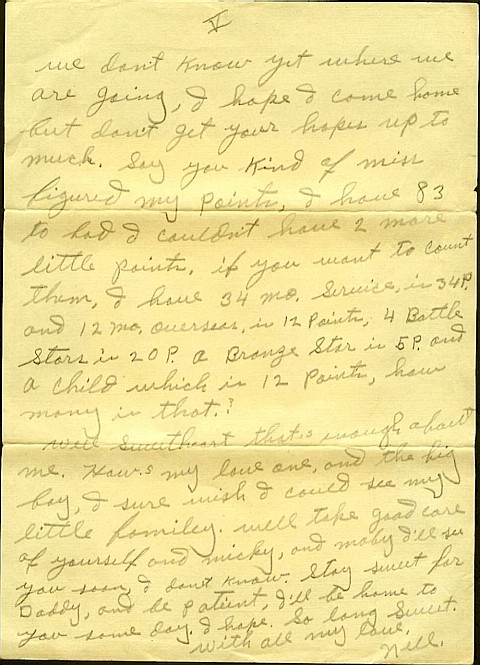 V
we don't know yet where we
are going, I hope I come home
but don't get your hopes up to
much. Say you kind of miss
figured my points, I have 83
to bad I couldn't have 2 more
little points, if you want to count
them, I have 34 mo. service, is 34 P.
and 12 mo. overseas, is 12 points, 4 Battle
Stars is 20 P. a Bronze Star is 5 P. and
a child which is 12 points, how
many is that.?
Well Sweetheart that's enough about
me. How's my love one, and the big
boy, I sure wish I could see my
little familey. Well take good care
of yourself and micky, and maby I'll see
you soon, I don't know. Stay sweet for
Daddy, and be patient, I'll be home to
you some day. I hope. So long Sweet.
with all my love,